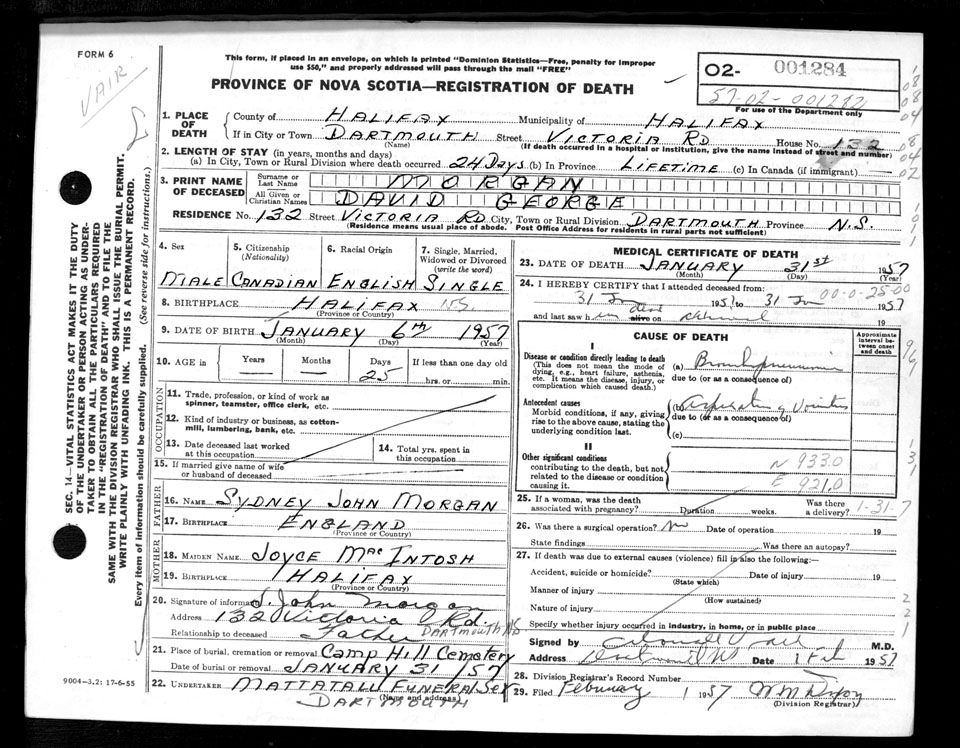 FORM 6
VAIR
This form, if placed in an envelope, on which is printed "Dominion Statistics—Free, penalty for improper
use $50," and properly addressed will pass through the mail "FREE"
PROVINCE OF NOVA SCOTIA—REGISTRATION OF DEATH
02- 001284
57-02-001272
For use of the Department only
1. PLACE OF DEATH
County of HALIFAX Municipality of HALIFAX
If in City or Town DARTMOUTH Street VICTORIA RD House No. 132
(Name) (If death occurred in a hospital or institution, give the name instead of street and number)
2. LENGTH OF STAY (in years, months and days)
(a) In City, Town or Rural Division where death occurred 24 DAYS (b) In Province LIFETIME (c) In Canada (if immigrant) —
3. PRINT NAME OF DECEASED
Surname or Last Name MORGAN
All Given or Christian Names DAVID GEORGE
RESIDENCE No. 132 Street VICTORIA RD City, Town or Rural Division DARTMOUTH Province N.S.
(Residence means usual place of abode. Post Office Address for residents in rural parts not sufficient)
4. Sex
5. Citizenship (Nationality)
6. Racial Origin
7. Single, Married, Widowed or Divorced (write the word)
MALE CANADIAN ENGLISH SINGLE
8. BIRTHPLACE HALIFAX
(Province or Country)
9. DATE OF BIRTH JANUARY 6TH 1957
(Month) (Day) (Year)
10. AGE in Years — Months — Days 25 If less than one day old hrs. or min.
OCCUPATION
11. Trade, profession, or kind of work as
spinner, teamster, office clerk, etc.
12. Kind of industry or business, as cotton-
mill, lumbering, bank, etc.
13. Date deceased last worked
at this occupation
14. Total yrs. spent in
this occupation
15. If married give name of wife
or husband of deceased
FATHER
16. NAME SYDNEY JOHN MORGAN
17. BIRTHPLACE ENGLAND
(Province or Country)
MOTHER
18. MAIDEN NAME JOYCE MACINTOSH
19. BIRTHPLACE HALIFAX
(Province or Country)
20. Signature of informant S. John Morgan
Address 132 Victoria Rd. DARTMOUTH NS
Relationship to deceased Father
21. Place of burial, cremation or removal CAMP HILL CEMETERY
Date of burial or removal JANUARY 31/57
22. UNDERTAKER MATTATALL FUNERAL SER
(Name and address)
DARTMOUTH
9004—3.2: 17-6-55
MEDICAL CERTIFICATE OF DEATH
23. DATE OF DEATH JANUARY 31st 1957
(Month) (Day) (Year)
24. I HEREBY CERTIFY that I attended deceased from:
31 Jan 1957 to 31 Jan 1957
00-0-25-00
and last saw h im dead alive on 19
CAUSE OF DEATH
Approximate interval between onset and death
I
Disease or condition directly leading to death
(This does not mean the mode of
dying, e.g., heart failure, asthenia,
etc. It means the disease, injury, or
complication which caused death.)
(a) Bronchopneumonia
due to (or as a consequence of)
Antecedent causes
Morbid conditions, if any, giving
rise to the above cause, stating the
underlying condition last.
(b) Aspirating Vomitus
due to (or as a consequence of)
(c)
II
Other significant conditions
contributing to the death, but not
related to the disease or condition
causing it.
N 933.0
E 921.0
25. If a woman, was the death
associated with pregnancy? Duration weeks. Was there a delivery?
1-31-7
26. Was there a surgical operation? No Date of operation 19
State findings Was there an autopsy?
27. If death was due to external causes (violence) fill in also the following:
Accident, suicide or homicide? Date of injury 19
(State which)
Manner of injury
(How sustained)
Nature of injury
Specify whether injury occurred in industry, in home, or in public place
Signed by M.D.
Address Date 1 Feb 1957
28. Division Registrar's Record Number
29. Filed February 1 1957 W M
(Division Registrar)
SEC. 14—VITAL STATISTICS ACT MAKES IT THE DUTY
OF THE UNDERTAKER OR PERSON ACTING AS UNDER-
TAKER TO OBTAIN ALL THE PARTICULARS REQUIRED
IN THE "REGISTRATION OF DEATH" AND TO FILE THE
SAME WITH THE DIVISION REGISTRAR WHO SHALL ISSUE THE BURIAL PERMIT.
WRITE PLAINLY WITH UNFADING INK. THIS IS A PERMANENT RECORD.
Every item of information should be carefully supplied. (See reverse side for instructions.)